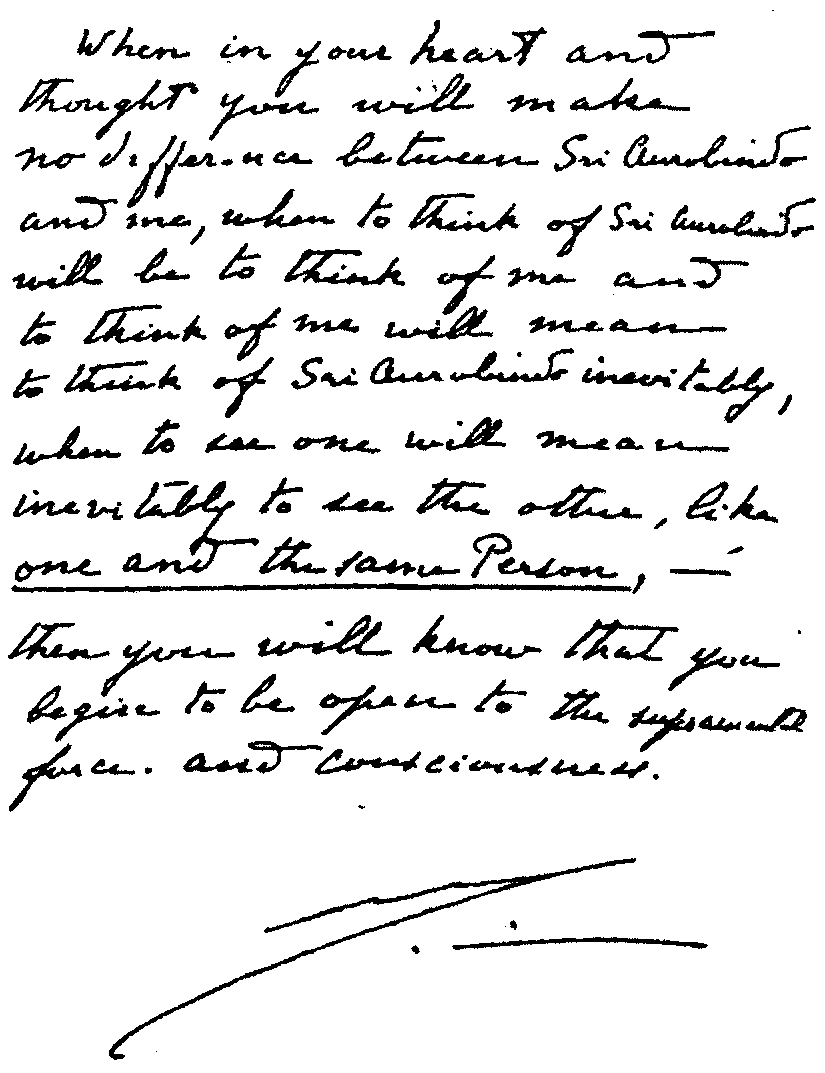 When in your heart and
thought you will make
no difference between Sri Aurobindo
and me, when to think of Sri Aurobindo
will be to think of me and
to think of me will mean
to think of Sri Aurobindo inevitably,
when to see one will mean
inevitably to see the other, like
one and the same Person, —
then you will know that you
begin to be open to the supramental
force. and consciousness.